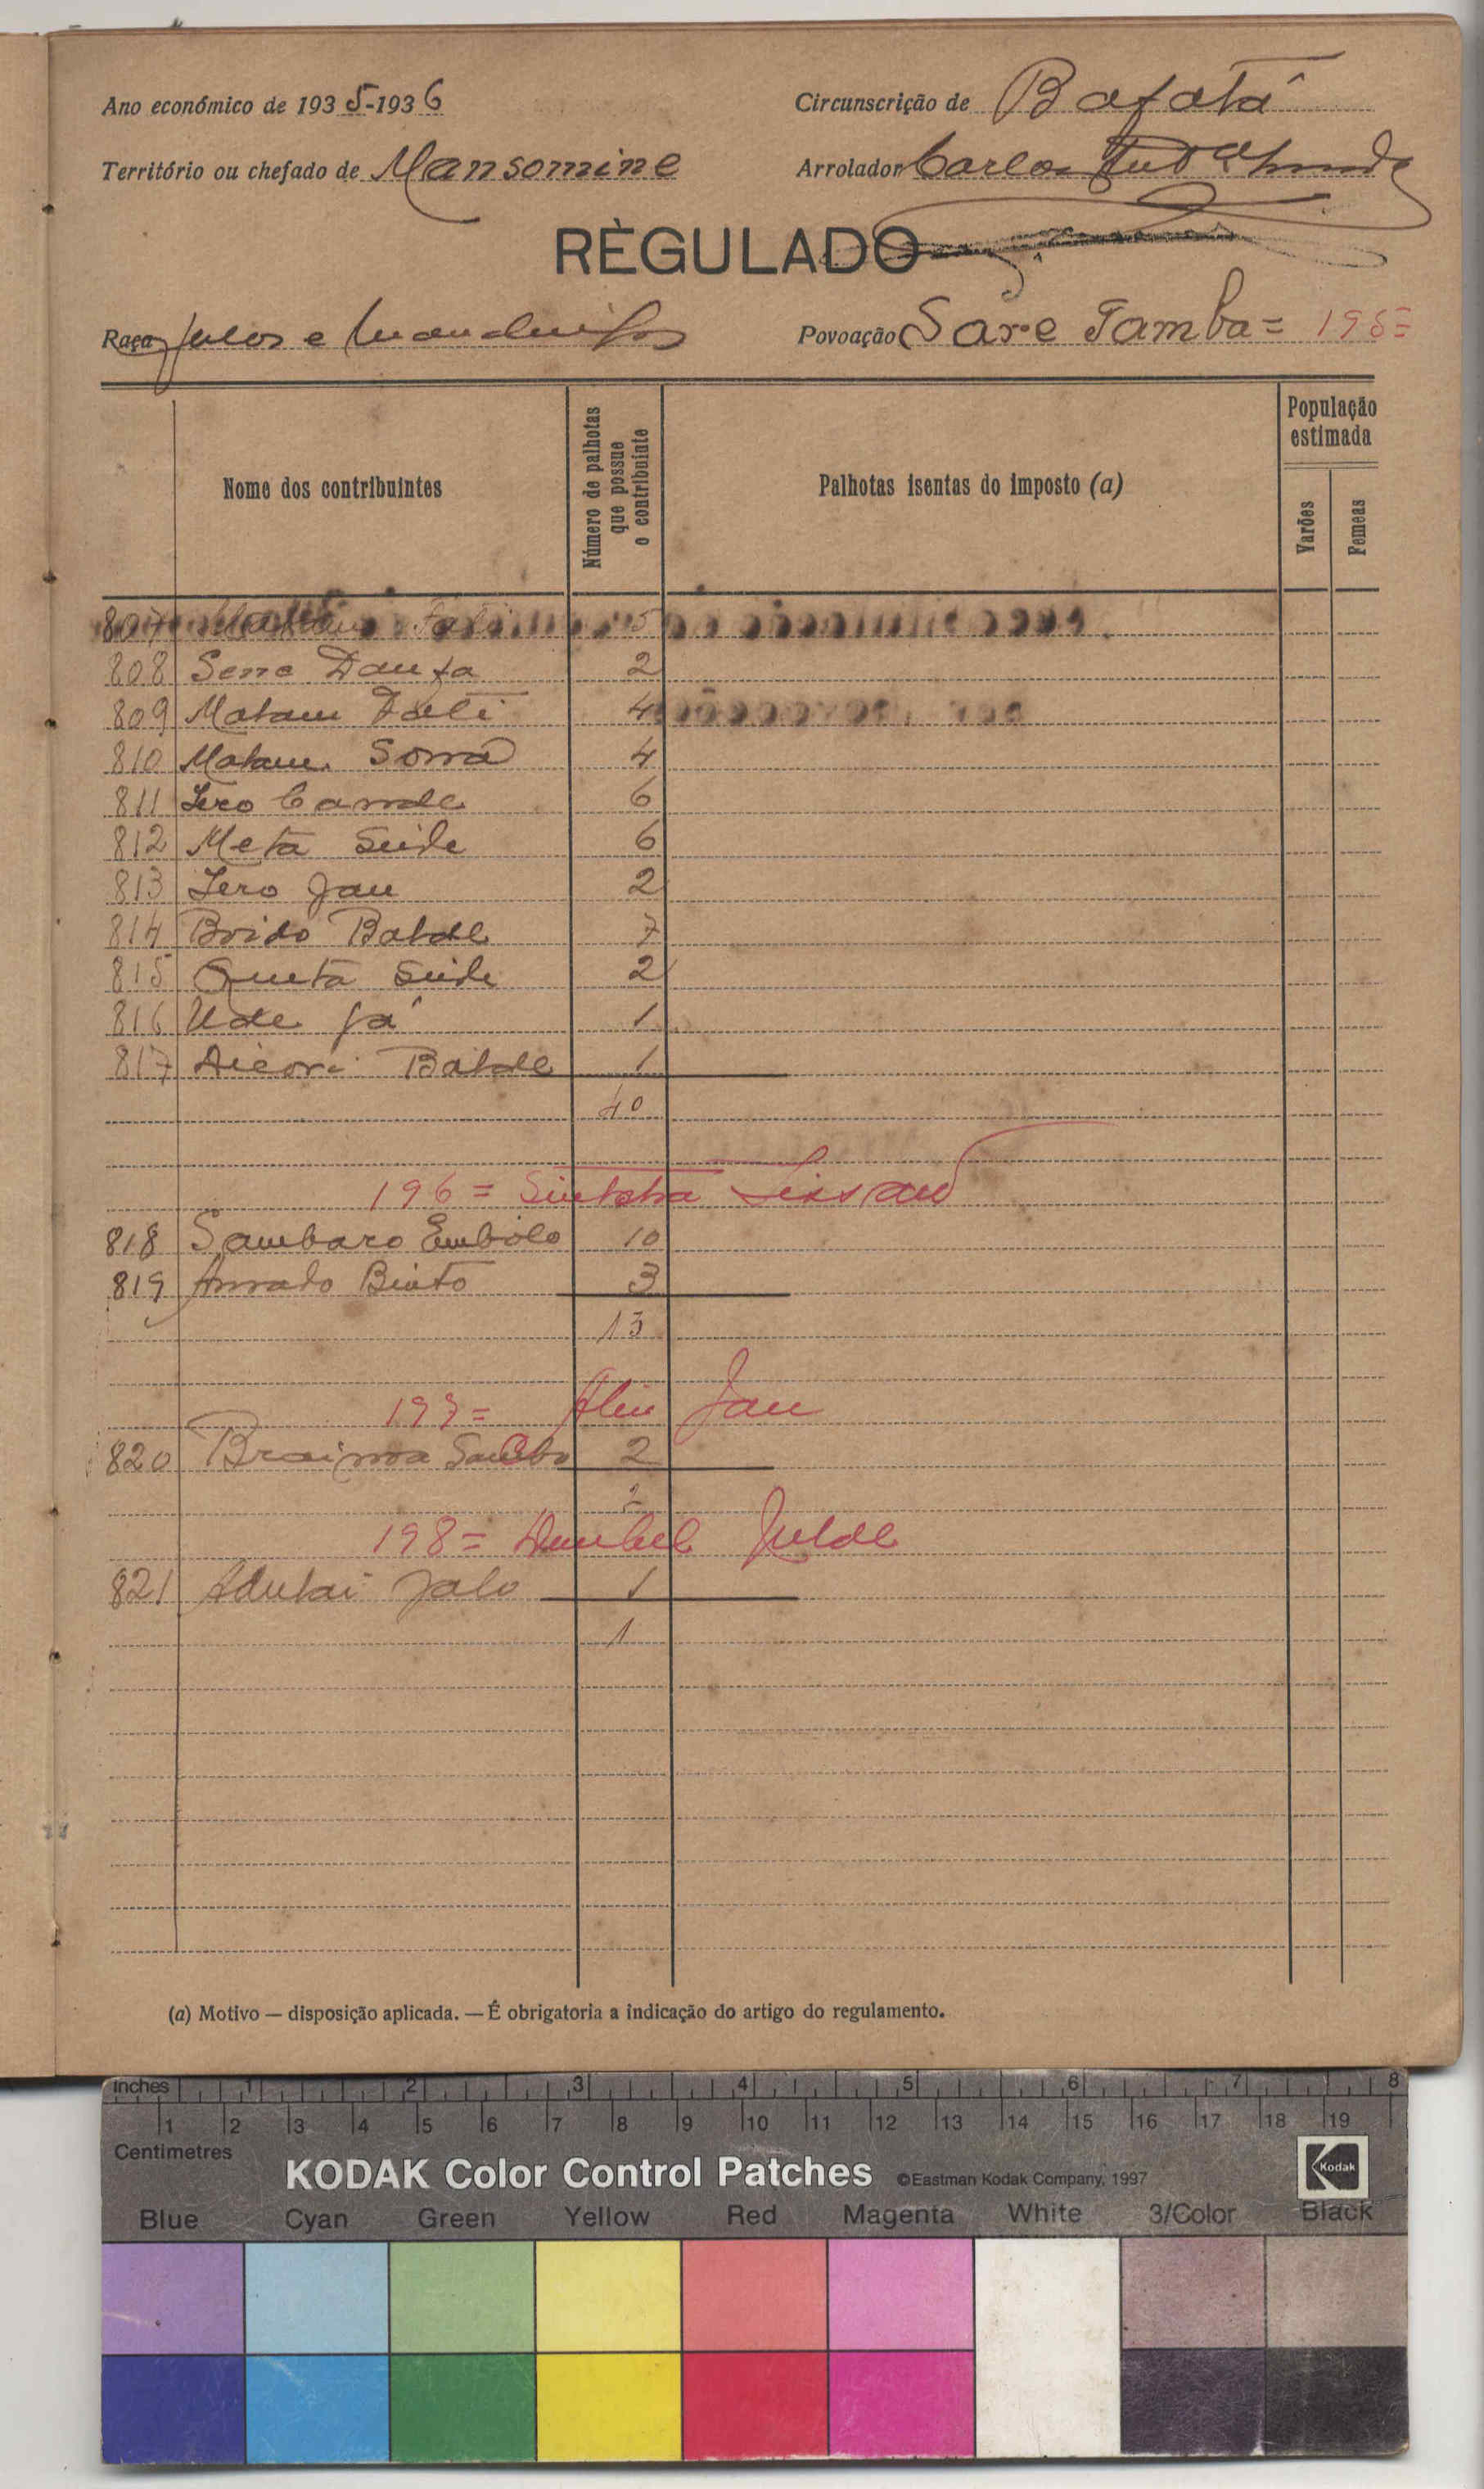 Ano económico de 1935-1936
Circunscrição de Bafatá
Território ou chefado de Mansomine
Arrolador Carlos
RÈGULADO
Raça fulos e mandingas
Povoação Sare Tamba = 195=
Nome dos contribuintes
Número de palhotas que possue o contribuinte
Palhotas isentas do imposto (a)
População estimada
Varões
Femeas
807 5
808 Sene Danfa 2
809 Malam Fati 4
810 Malam 4
811 Tero Cande 6
812 Meta Seide 6
813 Tero Jau 2
814 Baldé 7
815 Queta Seide 2
816 Ude Já 1
817 Balde 1
40
196 = Sintcha
818 Sambaro Embalo 10
819 3
13
197 = Aliu Jau
820 Braima 2
2
198 = Dembel Julde
821 Adulai Jalo 1
1
(a) Motivo — disposição aplicada. — É obrigatoria a indicação do artigo do regulamento.
Inches 1 2 3 4 5 6 7 8
1 2 3 4 5 6 7 8 9 10 11 12 13 14 15 16 17 18 19
Centimetres
KODAK Color Control Patches ©Eastman Kodak Company, 1997 Kodak
Blue Cyan Green Yellow Red Magenta White 3/Color Black